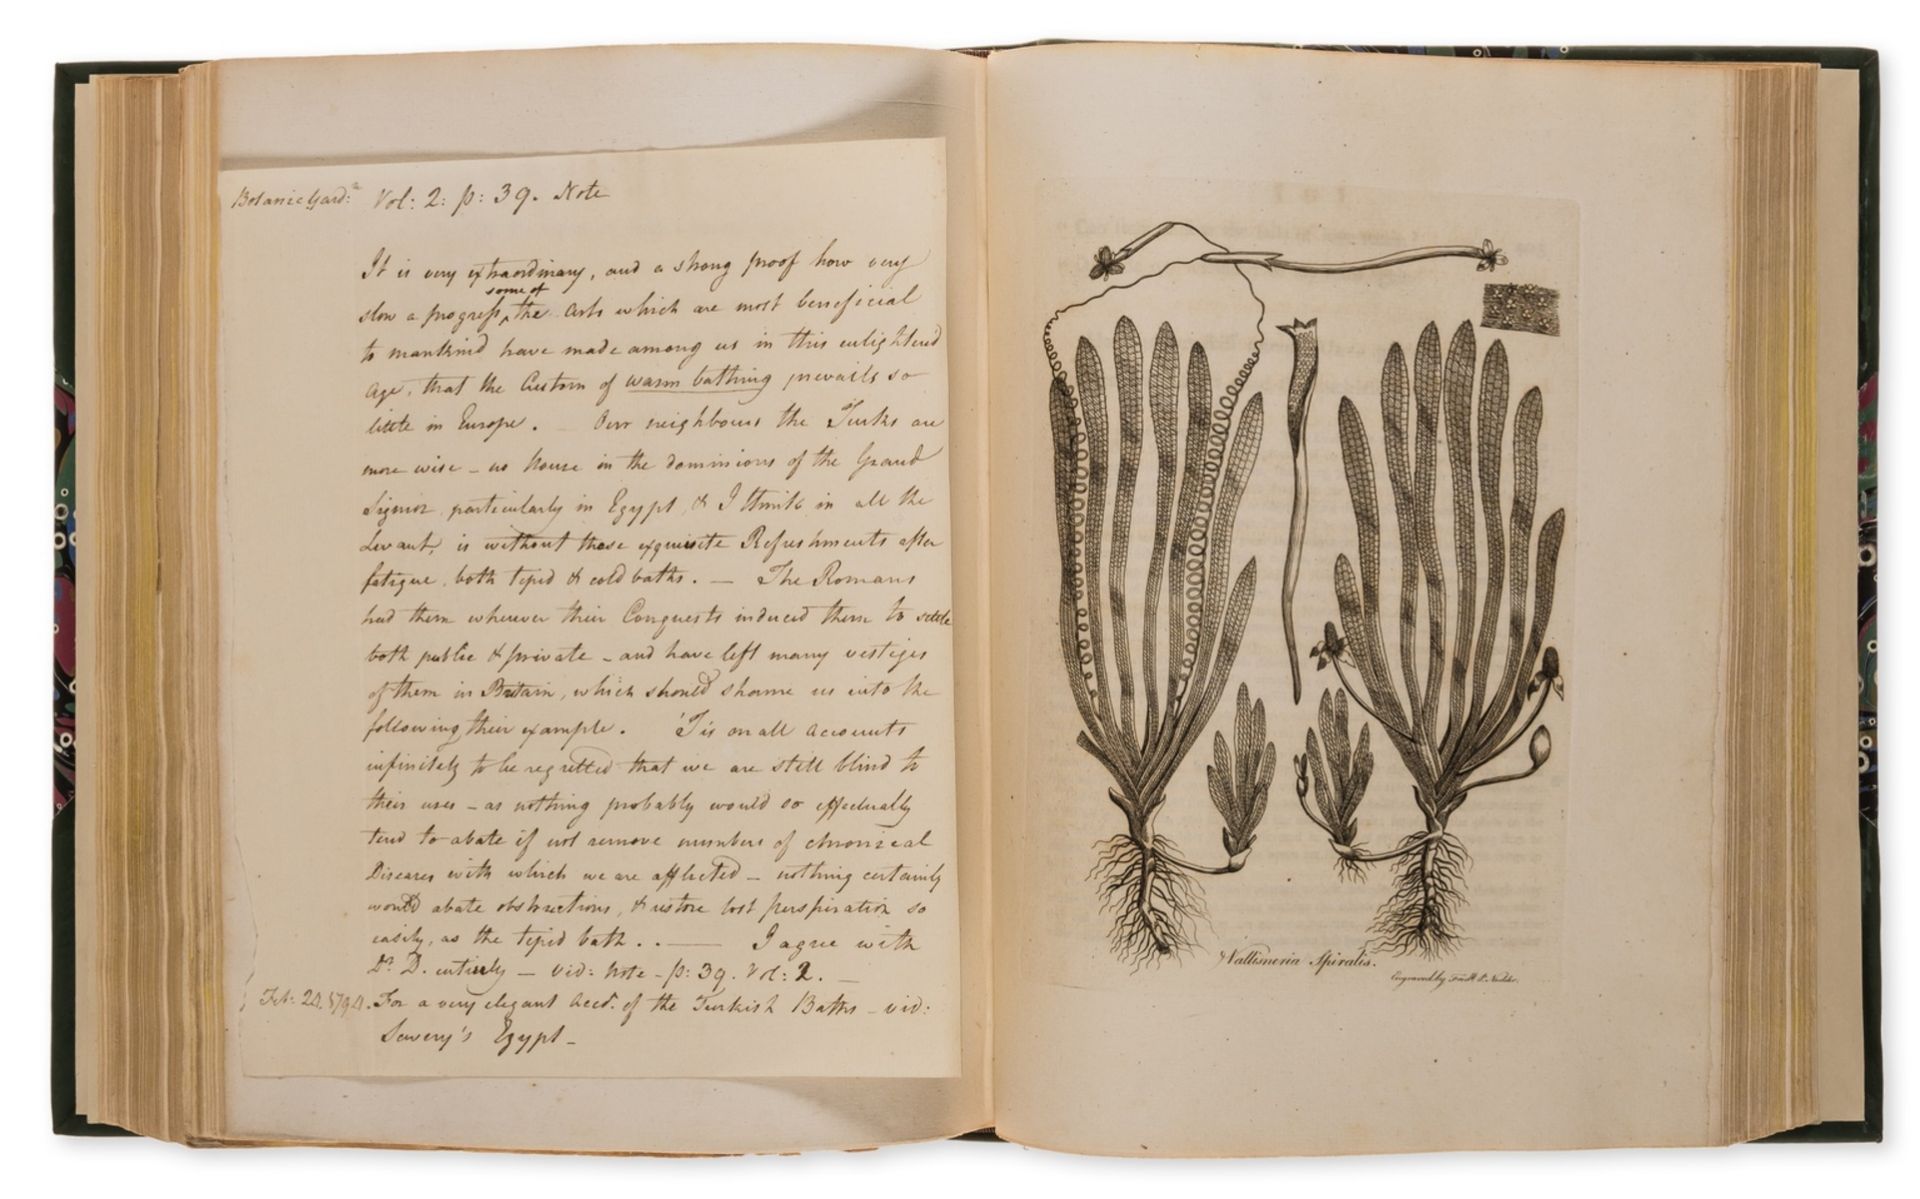 Botanic Gard:ⁿ Vol: 2: p: 39. Note
It is very extraordinary, and a strong proof how very
some of
slow a progress ^ the Arts which are most beneficial
to mankind have made among us in this enlighten'd
Age, that the Custom of warm bathing prevails so
little in Europe. — Our neighbours the Turks are
more wise – no house in the dominions of the Grand
Signior, particularly in Egypt, & I think in all the
Levant, is without those exquisite Refreshments after
fatigue, both tepid & cold baths. — The Romans
had them wherever their Conquests induced them to settle
both public & private – and have left many vestiges
of them in Britain, which should shame us into the
following their example. 'Tis on all accounts
infinitely to be regretted that we are still blind to
their uses – as nothing probably would so effectually
tend to abate if not remove numbers of chronical
Diseases with which we are afflicted – nothing certainly
would abate obstructions, & restore lost perspiration so
easily, as the tepid bath. . — I agree with
Dr. D. entirely — vid: Note – p: 39. Vol: 2. —
Feb: 24. 1794. For a very elegant Acct. of the Turkish Baths – vid:
Savery's Egypt –
Vallisneria Spiralis.
Engraved by Fredk. P. Nodder.